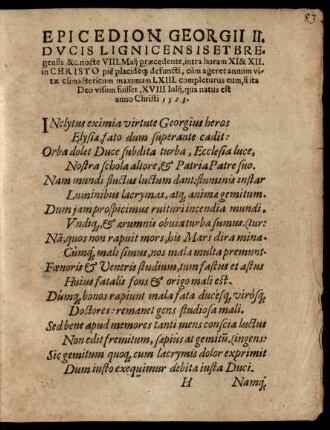 83
EPICEDION GEORGII II.
DVCIS LIGNICENSIS ET BRE-
gensis &c. nocte VIII. Maij præcedente, intra horam XI & XII.
in CHRISTO piè placideq; defuncti, cùm ageret annum vi-
tæ climactericum maximum LXIII completurus eum, si ita
Deo visum fuisset, XVIII Iulij, qua natus est
anno Christi 1523.
INclytus eximia virtute Georgius heros
Elysia, fato dum superante cadit:
Orba dolet Duce subdita turba, Ecclesia luce,
Nostra schola altore, & Patria Patre suo.
Nam mundi fluctus luctum dant: fluminis instar
Luminibus lacrymas, atq; anima gemitum.
Dum jam prospicimus ruituri incendia mundi,
Vndiq;, & ærumnis obvia turba sumus. (tur:
Nã, quos non rapuit mors, his Mars dira mina-
Cùmq; mali simus, nos mala multa premunt.
Fœnoris & Veneris studium, tum fastus et astus
Huius fatalis fons & origo mali est.
Dumq; bonos rapiunt mala fata ducesq;, virosq;
Doctores: remanet gens studiosa mali.
Sed bene apud memores tanti mens conscia luctus
Non edit fremitum, sæpius at gemitũ. (ingens:
Sic gemitum quoq; cum lacrymis dolor exprimit
Dum iusto exequimur debita iusta Duci.
H Namq;